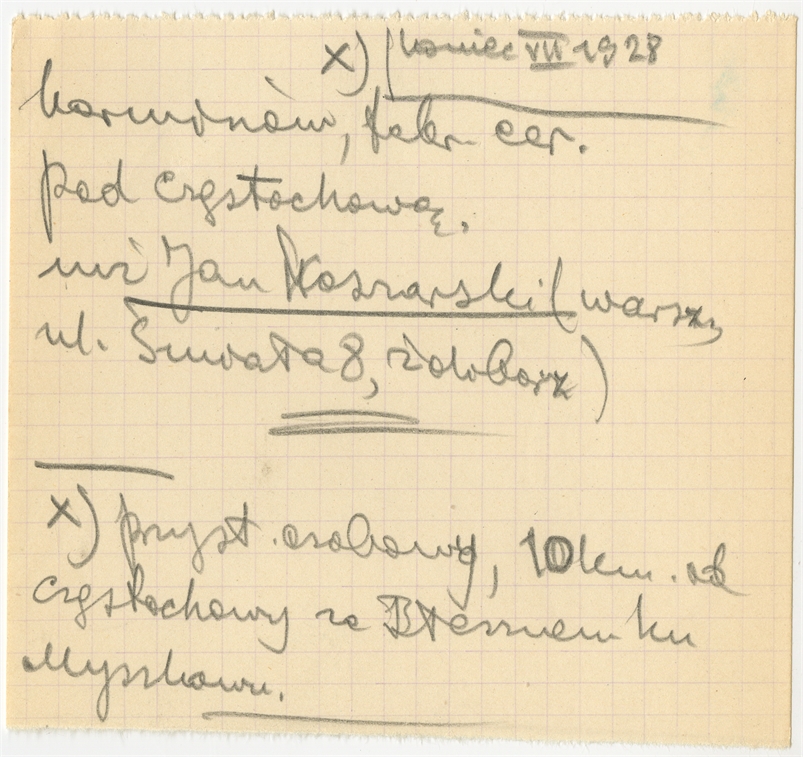 x) (koniec VII 1928
Korwinów, fabr. cer.
pod Częstochową.
inż Jan Koszarski (Warsz,
ul. Śmiała 8, Żoliborz)
x) przyst. osobowy, 10 km. od
Częstochowy za Błesznem ku
Myszkowu.